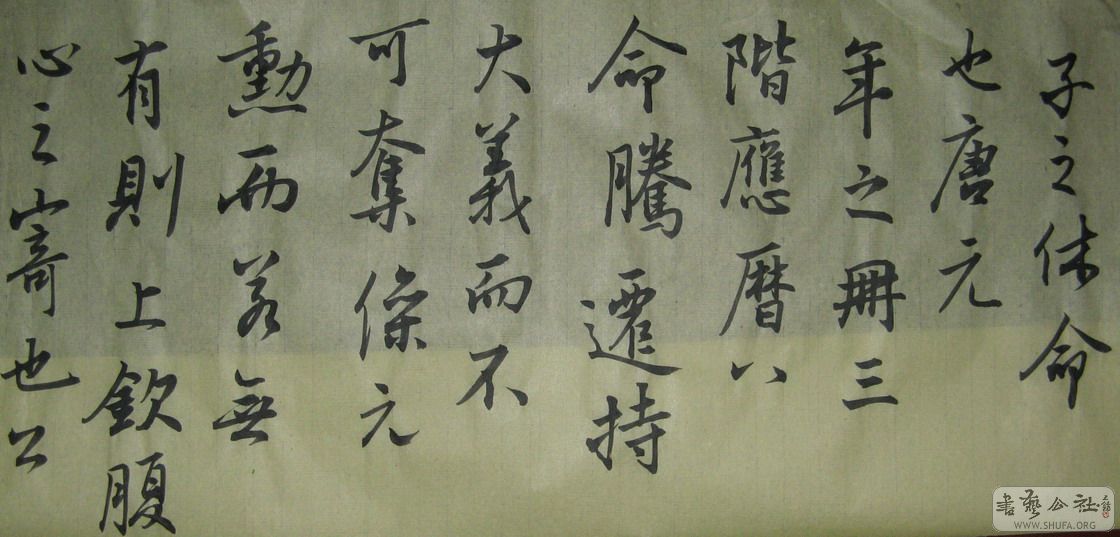 子之休命
也唐元
年之冊三
階應曆八
命騰遷持
大義而不
可奪保元
勳而若無
有則上欽
腹心之寄也公
書藝公社
WWW.SHUFA.ORG